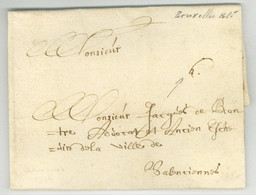 Bruxelles
Monsieur
Monsieur Jacques de Bran
=tre Advocat et Ancien Esche
=vin de la Ville de
Valenciennes